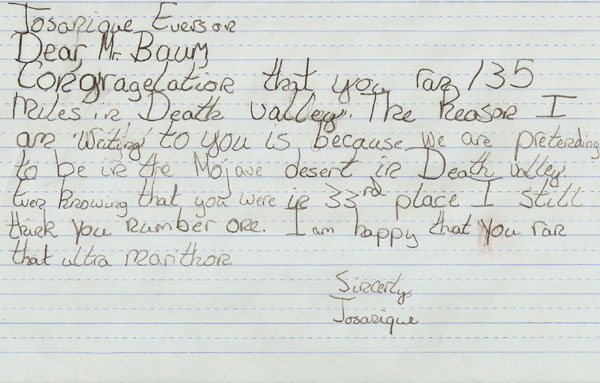 Josarique Everson
Dear, Mr. Baum,
Congragelation that you ran 135
miles in Death valley. The Reason I
am writing to you is because we are pretending
to be in the Mojave desert in Death valley.
Even knowing that you were in 33rd place I still
think you number one. I am happy that you ran
that ultra marithon
Sincerty,
Josarique